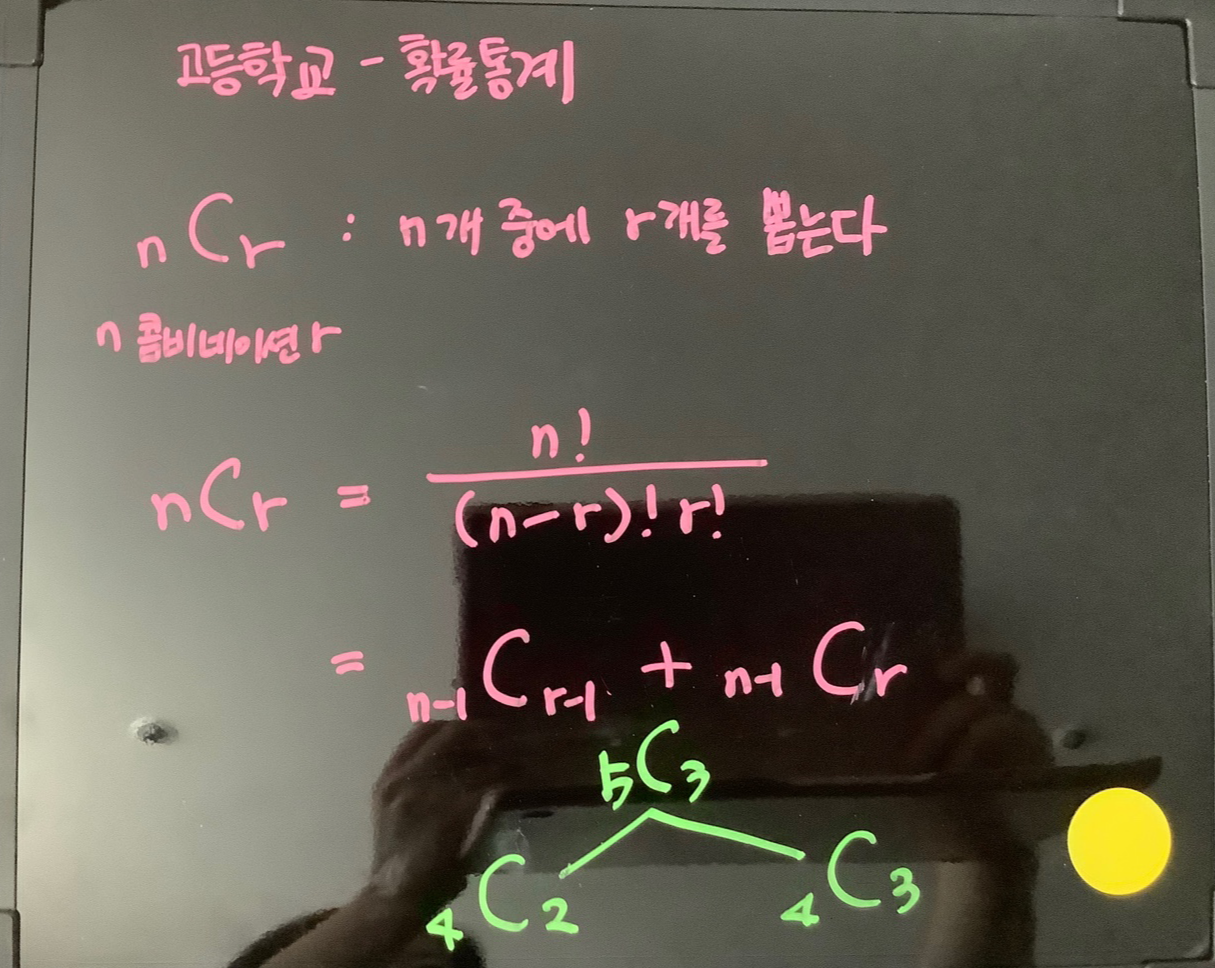 고등학교 - 확률통계
nCr : n개 중에 r개를 뽑는다
n 콤비네이션 r
nCr = n! / (n-r)! r!
= n-1Cr-1 + n-1Cr
5C3
4C2 4C3